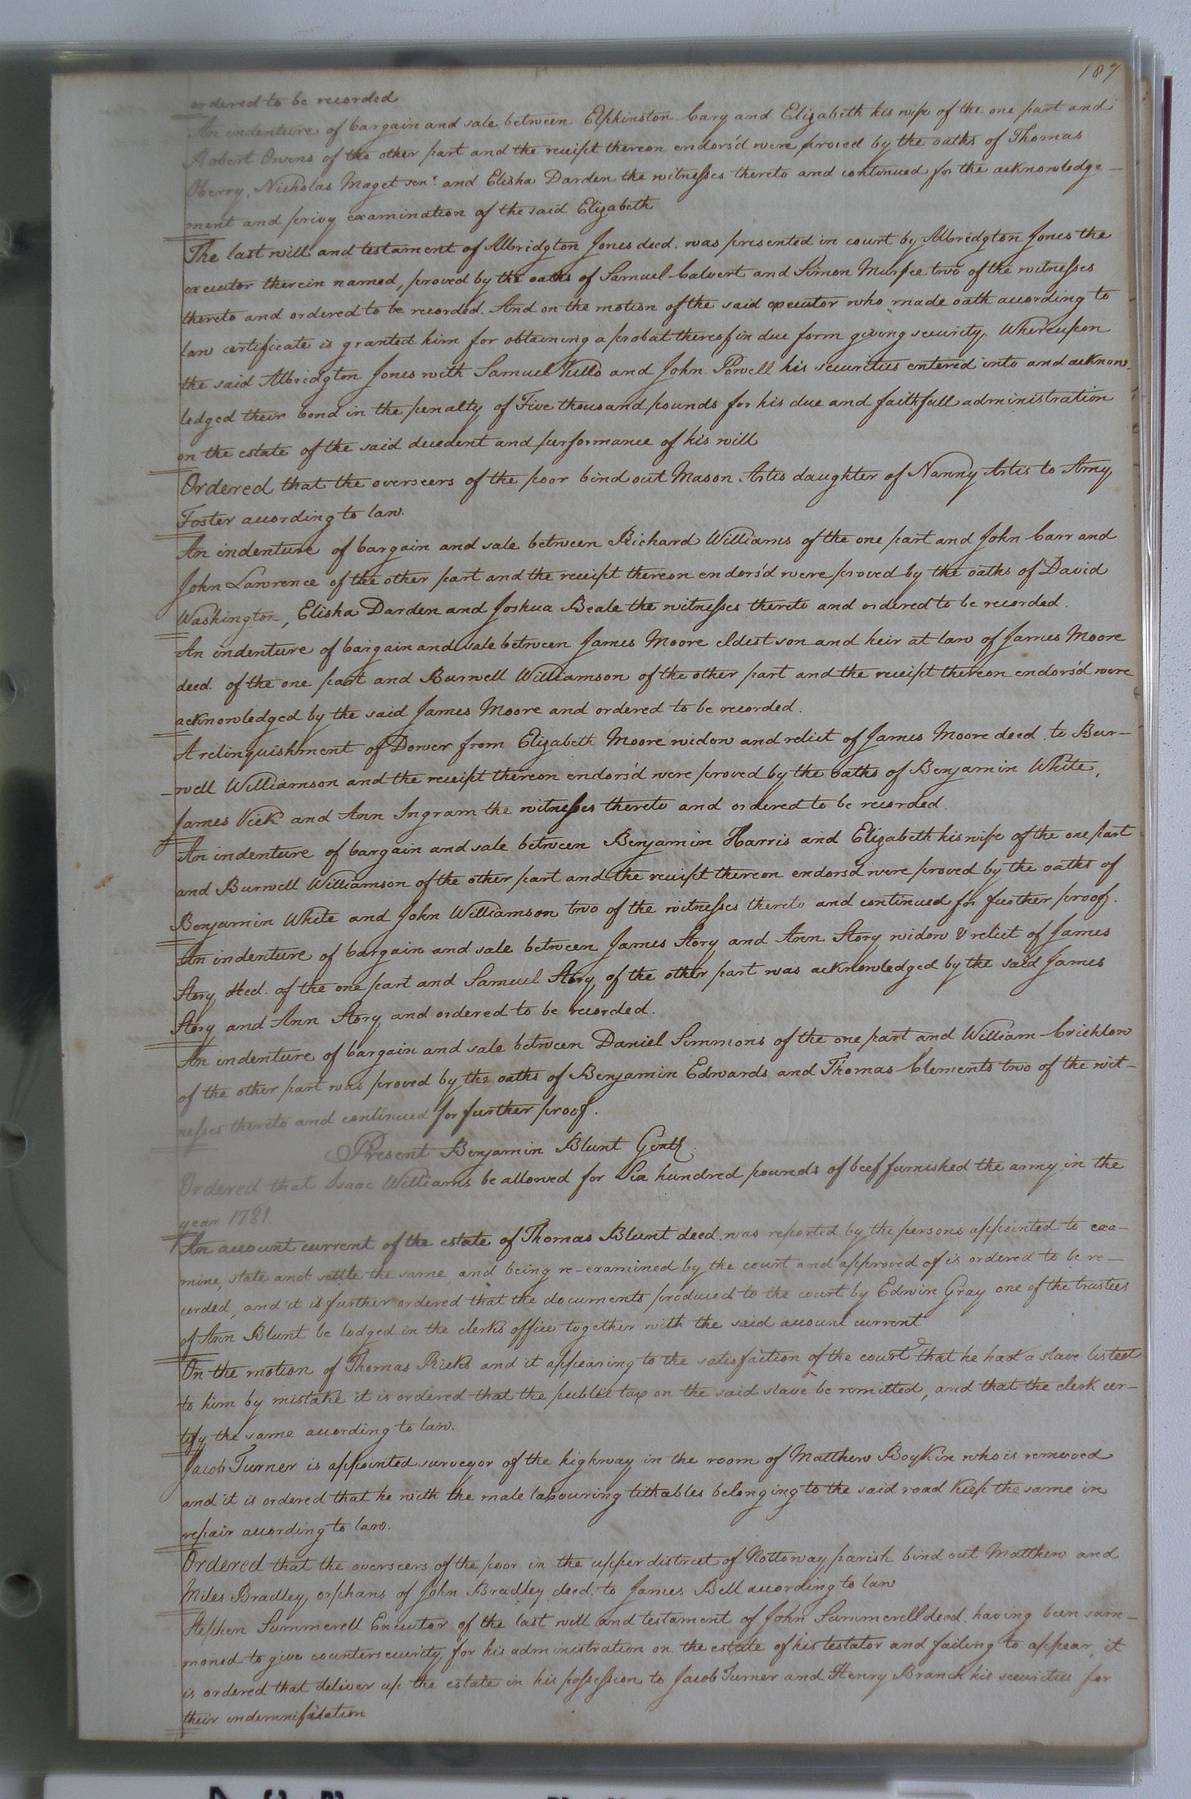 187
ordered to be recorded
An indenture of bargain and sale between Elphinston Cary and Elizabeth his wife of the one part and
Robert Owens of the other part and the receipt thereon endors'd were proved by the oaths of Thomas
Oberry, Nicholas Maget senr. and Elisha Darden the witnesses thereto and continued for the acknowledge-
ment and privy examination of the said Elizabeth
The last will and testament of Albridgton Jones decd. was presented in court by Albridgton Jones the
executor therein named, proved by the oaths of Samuel Calvert and Simon Murfee two of the witnesses
thereto and ordered to be recorded. And on the motion of the said executor who made oath according to
law certificate is granted him for obtaining a probat thereof in due form giving security. Whereupon
the said Albridgton Jones with Samuel Kello and John Powell his securities entered into and acknow-
ledged their bond in the penalty of Five thousand pounds for his due and faithfull administration
on the estate of the said decedent and performance of his will
Ordered that the overseers of the poor bind out Mason Artis daughter of Nanny Artis to Amy
Foster according to law.
An indenture of bargain and sale between Richard Williams of the one part and John Carr and
John Lawrence of the other part and the receipt thereon endors'd were proved by the oaths of David
Washington, Elisha Darden and Joshua Beale the witnesses thereto and ordered to be recorded.
An indenture of bargain and sale between James Moore eldest son and heir at law of James Moore
decd. of the one part and Burwell Williamson of the other part and the receipt thereon endors'd were
acknowledged by the said James Moore and ordered to be recorded.
A relinquishment of Dower from Elizabeth Moore widow and relict of James Moore decd. to Bur-
-well Williamson and the receipt thereon endors'd were proved by the oaths of Benjamin White,
James Vick and Ann Ingram the witnesses thereto and ordered to be recorded.
An indenture of bargain and sale between Benjamin Harris and Elizabeth his wife of the one part
and Burwell Williamson of the other part and the receipt thereon endors'd were proved by the oaths of
Benjamin White and John Williamson two of the witnesses thereto and continued for further proof.
An indenture of bargain and sale between James Story and Ann Story widow & relict of James
Story decd. of the one part and Samuel Story of the other part was acknowledged by the said James
Story and Ann Story and ordered to be recorded.
An indenture of bargain and sale between Daniel Simmons of the one part and William Crichlow
of the other part was proved by the oaths of Benjamin Edwards and Thomas Clements two of the wit-
nesses thereto and continued for further proof.
Present Benjamin Blunt Gentl.
Ordered that Isaac Williams be allowed for Six hundred pounds of beef furnished the army in the
year 1781.
An account current of the estate of Thomas Blunt decd. was reported by the persons appointed to exa-
mine, state and settle the same and being re-examined by the court and approved of is ordered to be re-
corded, and it is further ordered that the documents produced to the court by Edwin Gray one of the trustees
of Ann Blunt be lodged in the clerks office together with the said account current
On the motion of Thomas Ricks and it appearing to the satisfaction of the court that he had a slave listed
to him by mistake it is ordered that the public tax on the said slave be remitted, and that the clerk cer-
tify the same according to law.
Jacob Turner is appointed surveyor of the highway in the room of Matthew Boykin who is removed
and it is ordered that he with the male labouring tithables belonging to the said road keep the same in
repair according to law.
Ordered that the overseers of the poor in the upper district of Nottoway parish bind out Matthew and
Miles Bradley, orphans of John Bradley decd. to James Bell according to law
Stephen Summerell Executor of the last will and testament of John Summerell decd. having been sum-
moned to give countersecurity for his administration on the estate of his testator and failing to appear, it
is ordered that deliver up the estate in his possession to Jacob Turner and Henry Branch his securities for
their indemnification